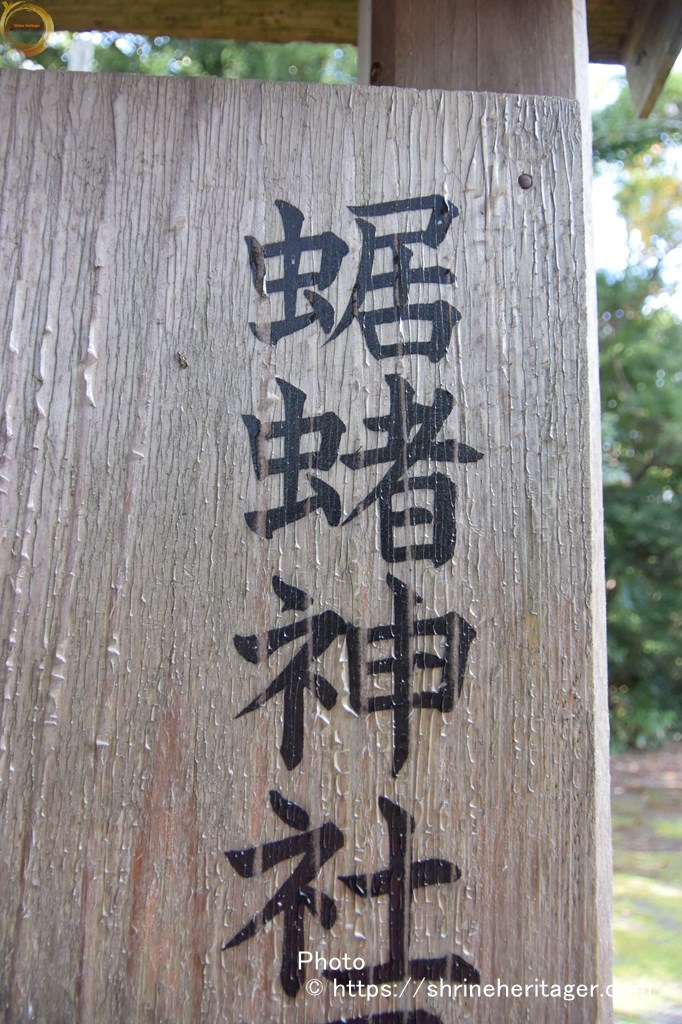 Shrine Heritager
蜛蝫神社
Photo
© https://shrineheritager.com